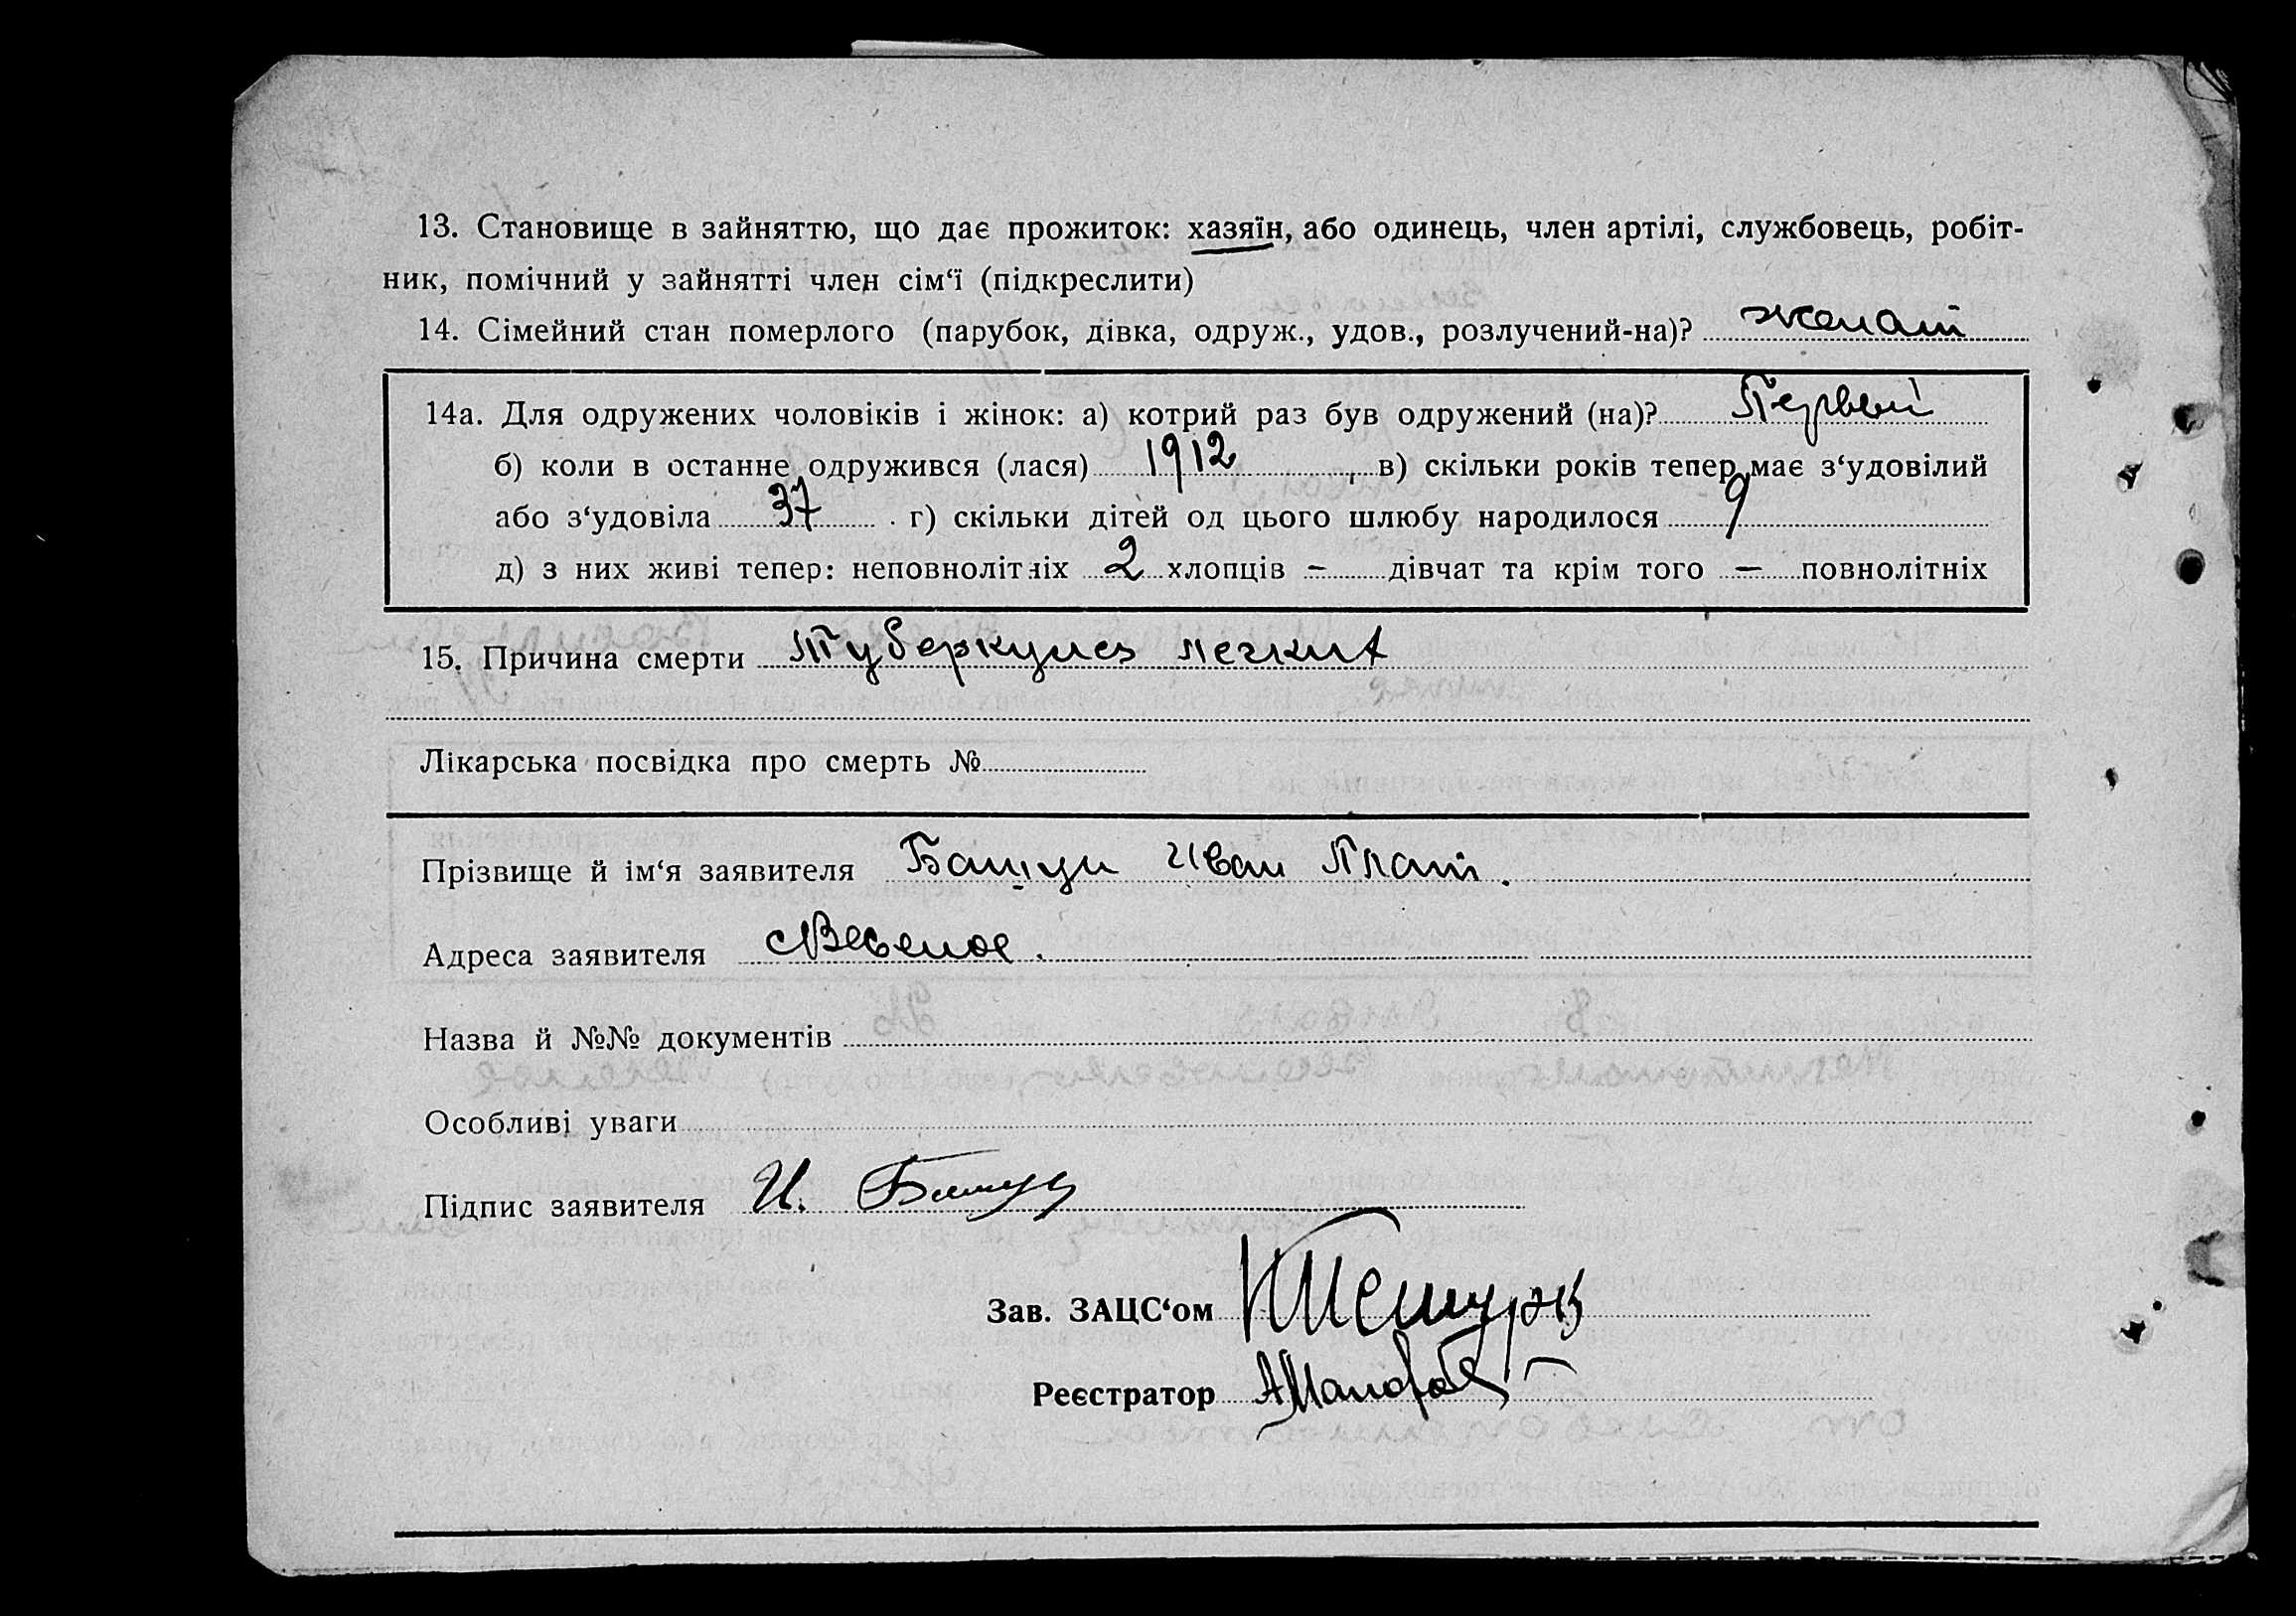 13. Становище в зайняттю, що дає прожиток: хазяїн, або одинець, член артілі, службовець, робіт-
ник, помічний у зайнятті член сім‘ї (підкреслити)
14. Сімейний стан померлого (парубок, дівка, одруж., удов., розлучений-на)? женат
14а. Для одружених чоловіків і жінок: а) котрий раз був одружений (на)? Первый
б) коли в останне одружився (лася) 1912, в) скільки років тепер має з‘удовілий
або з‘удовіла 37. г) скільки дітей од цього шлюбу народилося 9
д) з них живі тепер: неповнолітніх 2 хлопців — дівчат та крім того — повнолітніх
15. Причина смерти Туберкулез легких
Лікарська посвідка про смерть №
Прізвище й ім‘я заявителя Иван Плат.
Адреса заявителя с Веселое.
Назва й №№ документів
Особливі уваги
Підпис заявителя И.
Зав. ЗАЦС‘ом
Реєстратор